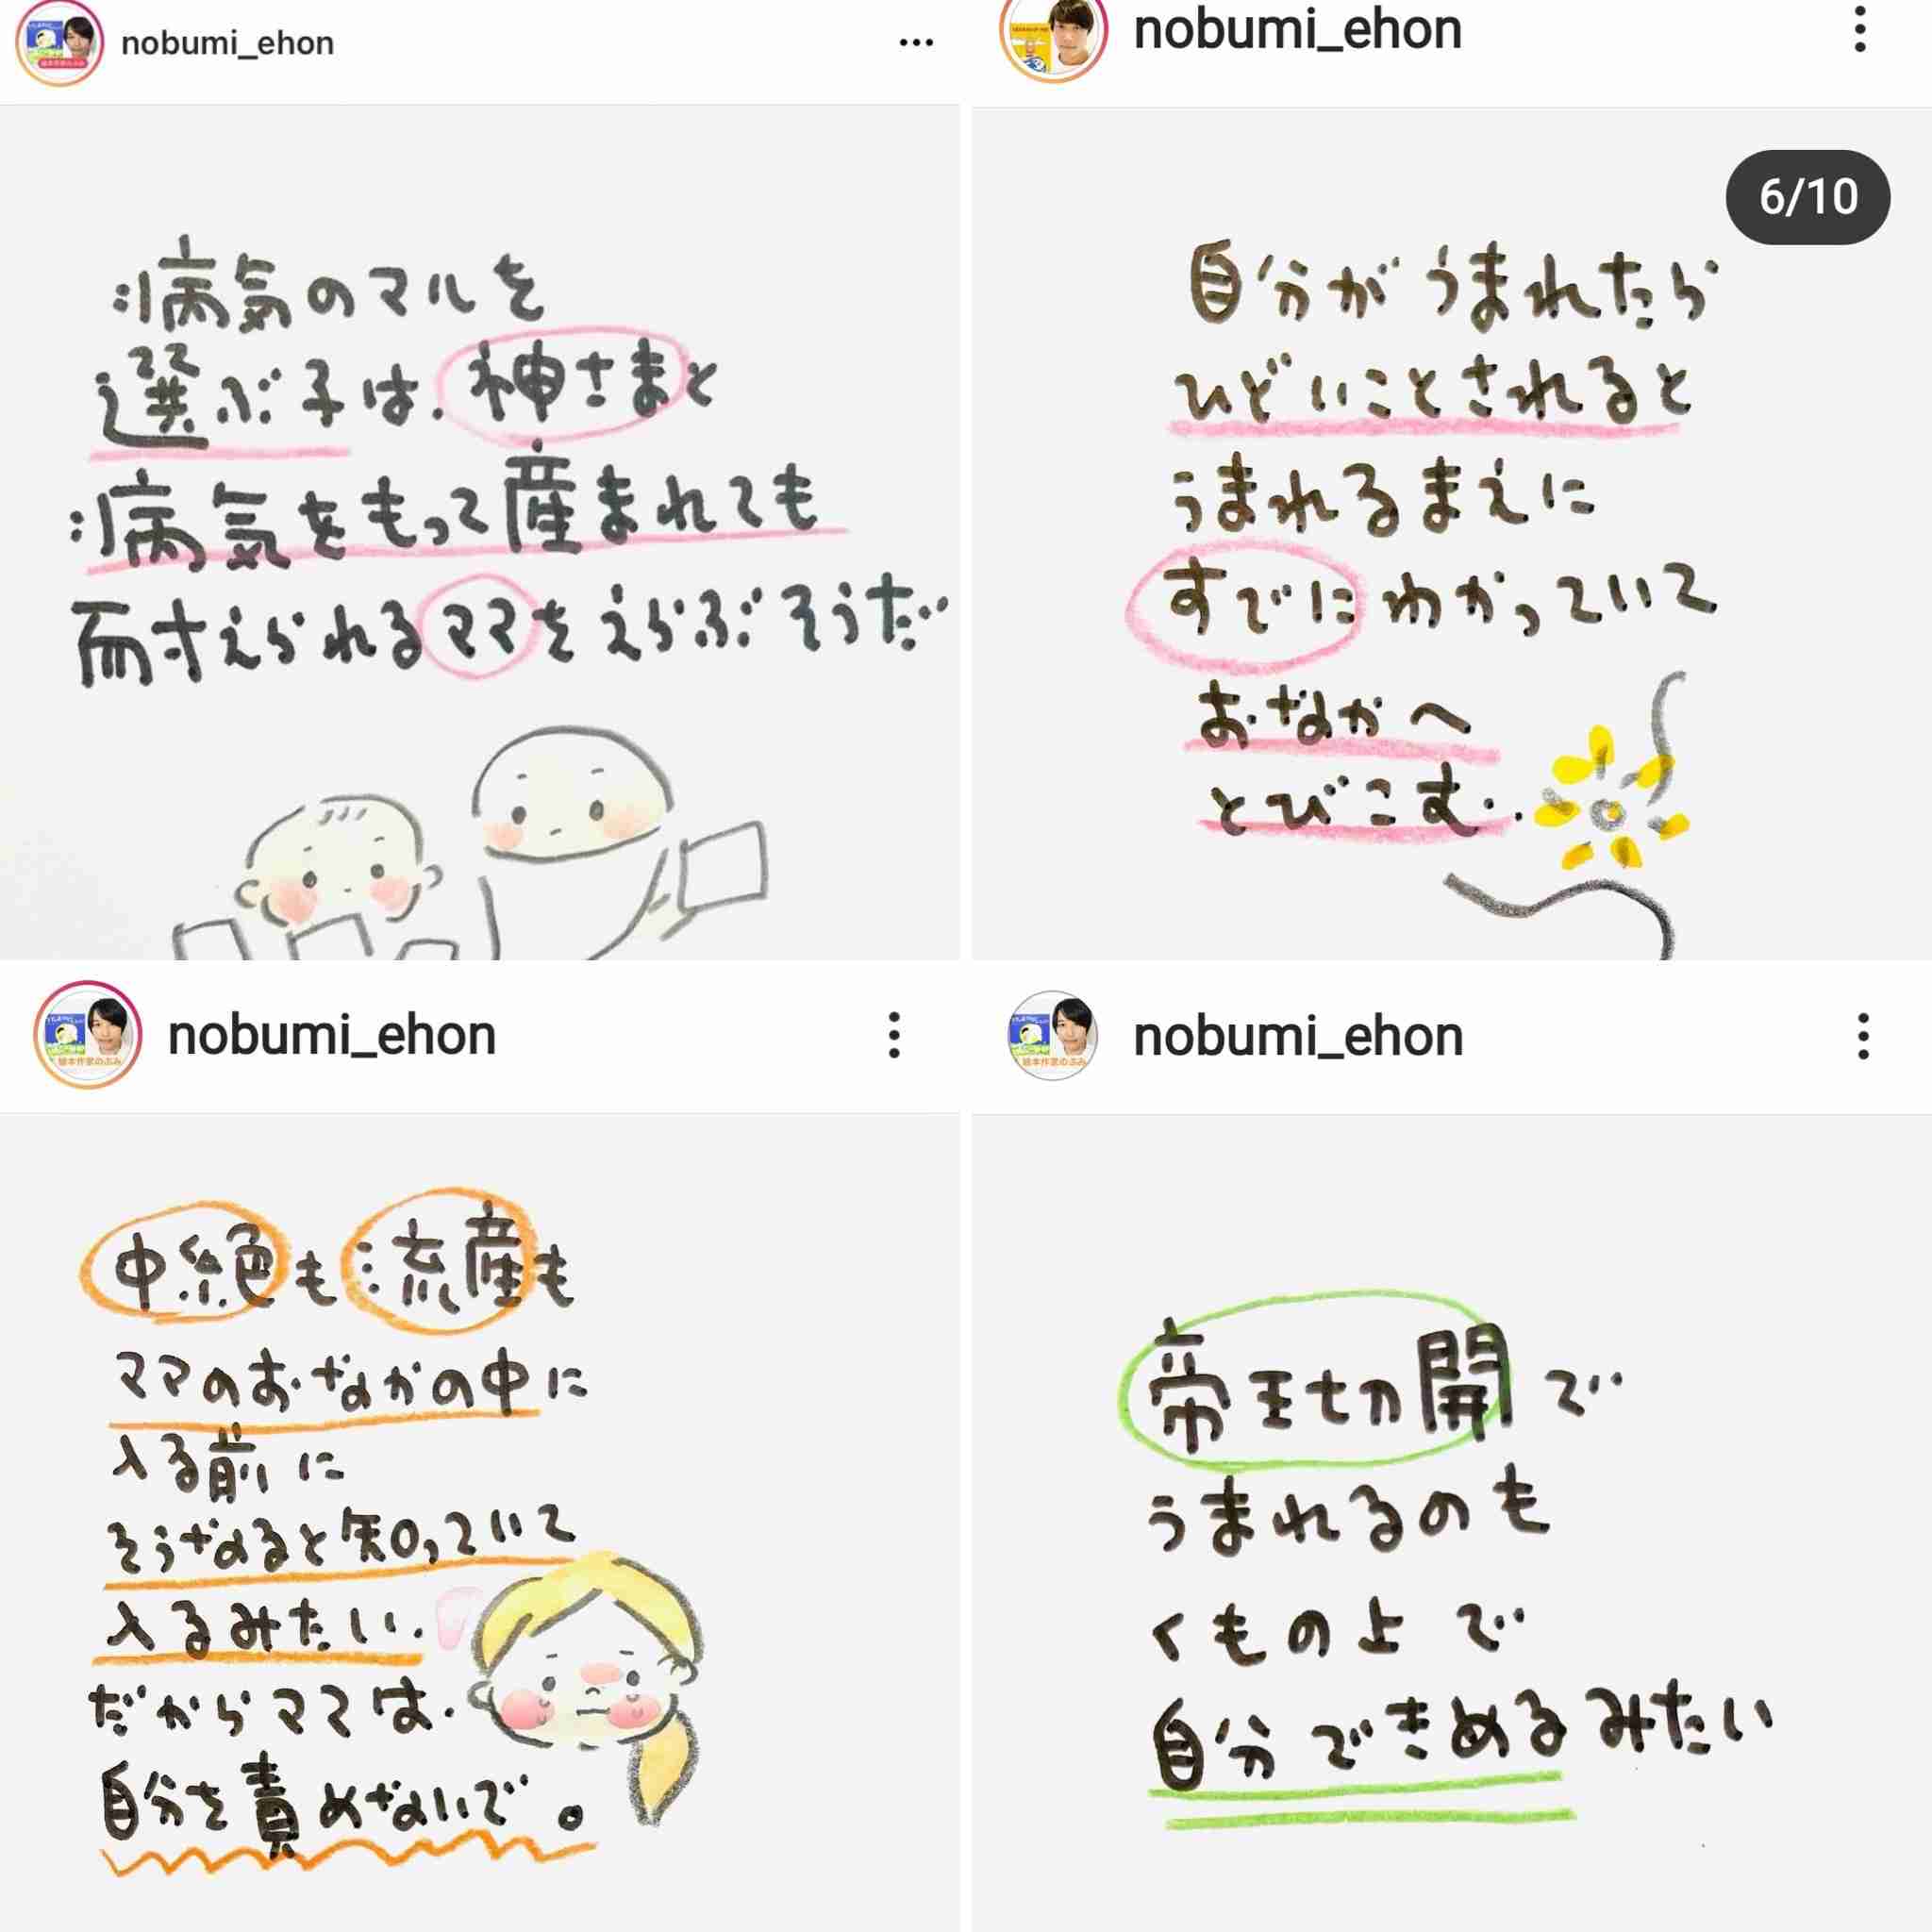 nobumi_ehon
病気のマルを
選ぶ子は、神さまと
病気をもって産まれても
耐えられるママをえらぶそうだ
nobumi_ehon
6/10
自分がうまれたら
ひどいことされると
うまれるまえに
すでにわかっていて
おなかへ
とびこむ、
nobumi_ehon
絵本作家のぶみ
中絶も流産も
ママのおなかの中に
入る前に
そうなると知っていて
入るみたい、
だからママは、
自分を責めないで。
nobumi_ehon
絵本作家のぶみ
帝王切開で
うまれるのも
くもの上で
自分できめるみたい